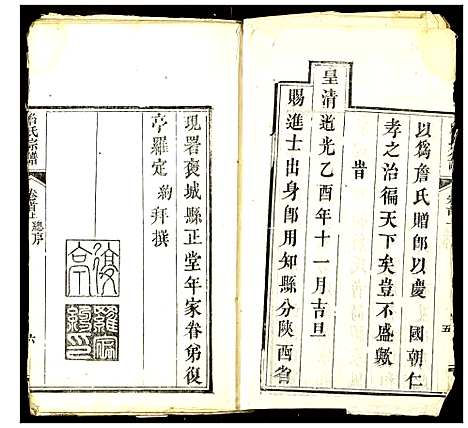 以為詹氏贈卽以慶 國朝仁
孝之治徧天下矣豈不盛歟
旹
皇清道光乙酉年十一月吉旦
賜進士出身卽用知縣分陝西省
五
現署褒城縣正堂年家眷弟復
亭羅定約拜撰
復亭
羅定約印
詹氏宗譜
卷首上總序
六